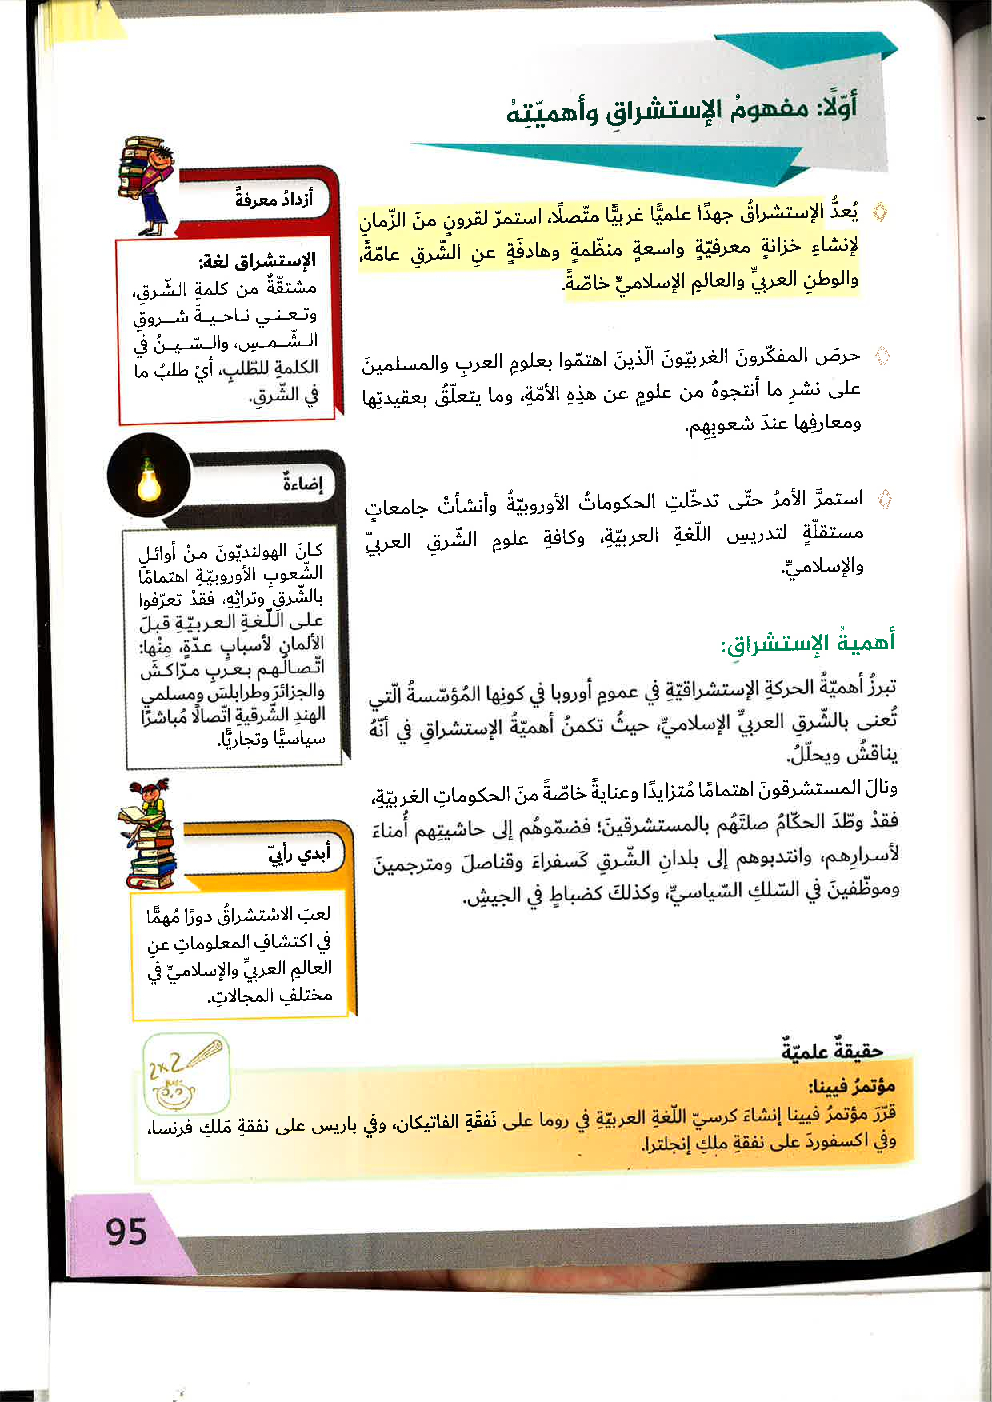 أوّلًا: مفهومُ الإستشراقِ وأهميّتِهُ
يُعدُّ الإستشراقُ جهدًا علميًّا غربيًّا متّصلًا، استمرّ لقرونٍ منَ الزّمانِ
لإنشاءِ خزانةٍ معرفيّةٍ واسعةٍ منظّمةٍ وهادفَةٍ عنِ الشّرقِ عامّةً،
والوطنِ العربيِّ والعالمِ الإسلاميِّ خاصّةً.
حرصَ المفكّرونَ الغربيّونَ الّذينَ اهتمّوا بعلومِ العربِ والمسلمينَ
على نشرِ ما أنتجوهُ من علومٍ عن هذِهِ الأمّةِ، وما يتعلّقُ بعقيدتِها
ومعارفِها عندَ شعوبِهِم.
استمرَّ الأمرُ حتّى تدخّلتِ الحكوماتُ الأوروبيّةُ وأنشأتْ جامعاتٍ
مستقلّةٍ لتدريسِ اللّغةِ العربيّةِ، وكافةِ علومِ الشّرقِ العربيِّ
والإسلاميِّ.
أهميةُ الإستشراقِ:
تبرزُ أهميّةُ الحركةِ الإستشراقيّةِ في عمومِ أوروبا في كونِها المُؤسّسةُ الّتي
تُعنى بالشّرقِ العربيِّ الإسلاميِّ، حيثُ تكمنُ أهميّةُ الإستشراقِ في أنّهُ
يناقشُ ويحلّلُ.
ونالَ المستشرقونَ اهتمامًا مُتزايدًا وعنايةً خاصّةً منَ الحكوماتِ الغربيّةِ،
فقدْ وطّدَ الحكّامُ صلتَهُم بالمستشرقينَ؛ فضمّوهُم إلى حاشيتِهم أُمناءَ
لأسرارِهم، وانتدبوهم إلى بلدانِ الشّرقِ كَسفراءَ وقناصلَ ومترجمينَ
وموظّفينَ في السّلكِ السّياسيِّ، وكذلكَ كضباطٍ في الجيشِ.
أزدادُ معرفةً
الإستشراق لغة:
مشتقّةٌ من كلمةِ الشّرقِ،
وتعني ناحيةَ شروقِ
الشّمسِ، والسّينُ في
الكلمةِ للطّلبِ، أيْ طلبُ ما
في الشّرقِ.
إضاءةٌ
كانَ الهولنديّونَ منْ أوائلِ
الشّعوبِ الأوروبيّةِ اهتمامًا
بالشّرقِ وتراثِهِ، فقدْ تعرّفوا
على اللّغةِ العربيّةِ قبلَ
الألمانِ لأسبابٍ عدّةٍ، مِنْها:
اتّصالُهم بعربِ مرّاكش
والجزائرِ وطرابلسَ ومسلمي
الهندِ الشّرقيةِ اتّصالًا مُباشرًا
سياسيًّا وتجاريًّا.
أبدي رأييَ
لعبَ الاسْتشراقُ دورًا مُهمًّا
في اكتشافِ المعلوماتِ عنِ
العالمِ العربيِّ والإسلاميِّ في
مختلفِ المجالاتِ.
2x2
حقيقةٌ علميّةٌ
مؤتمرُ فيينا:
قرّرَ مؤتمرُ فيينا إنشاءَ كرسيّ اللّغةِ العربيّةِ في روما على نَفقَةِ الفاتيكان، وفي باريس على نفقةِ مَلكِ فرنسا،
وفي اكسفوردَ على نفقةِ ملكِ إنجلترا.
95